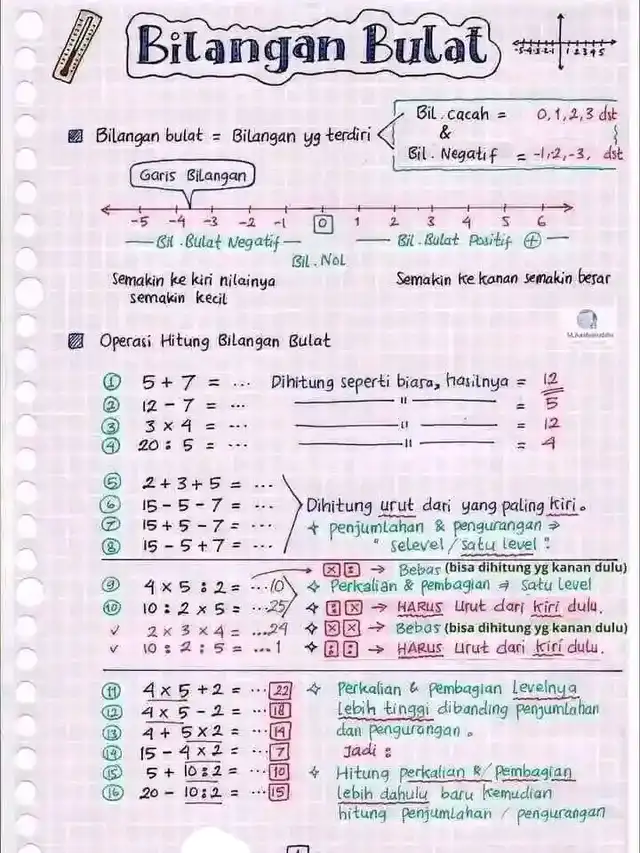 Bilangan Bulat
-5-4-3-2-1 1 2 3 4 5
Bilangan bulat = Bilangan yg terdiri
Bil. cacah = 0,1,2,3 dst
&
Bil. Negatif = -1,-2,-3, dst
Garis Bilangan
-5 -4 -3 -2 -1 0 1 2 3 4 5 6
Bil. Bulat Negatif
Bil. Nol
Bil. Bulat Positif +
Semakin ke kiri nilainya
semakin kecil
Semakin ke kanan semakin besar
Operasi Hitung Bilangan Bulat
1 5 + 7 = ... Dihitung seperti biara, hasilnya = 12
2 12 - 7 = ... " = 5
3 3 x 4 = ... " = 12
4 20 : 5 = ... " = 4
5 2 + 3 + 5 = ...
6 15 - 5 - 7 = ...
7 15 + 5 - 7 = ...
8 15 - 5 + 7 = ...
Dihitung urut dari yang paling kiri.
+ penjumlahan & pengurangan ⇒
" selevel / satu level :
x : → Bebas (bisa dihitung yg kanan dulu)
9 4 x 5 : 2 = ...10
Perkalian & pembagian ⇒ satu level
10 10 : 2 x 5 = ...25
: x → HARUS urut dari kiri dulu.
✓ 2 x 3 x 4 = ...24
x x → Bebas (bisa dihitung yg kanan dulu)
✓ 10 : 2 : 5 = ...1
: : → HARUS urut dari kiri dulu.
11 4 x 5 + 2 = ...22
12 4 x 5 - 2 = ...18
13 4 + 5 x 2 = ...14
14 15 - 4 x 2 = ...7
15 5 + 10 : 2 = ...10
16 20 - 10 : 2 = ...15
Perkalian & pembagian levelnya
lebih tinggi dibanding penjumlahan
dan pengurangan.
Jadi :
Hitung perkalian &/ pembagian
lebih dahulu baru kemudian
hitung penjumlahan / pengurangan
1